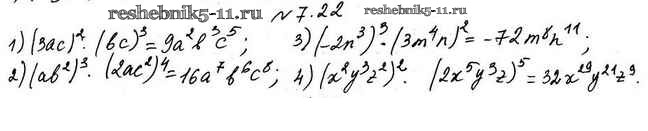 reshebnik5-11.ru №7.22 reshebnik5-11.ru
1) (3ac)²·(bc)³=9a²b³c⁵; 3) (-2n³)³·(3m⁴n)²=-72m⁸n¹¹;
2) (ab²)³·(2ac²)⁴=16a⁷b⁶c⁸; 4) (x²y³z²)²·(2x⁵y³z)⁵=32x²⁹y²¹z⁹.